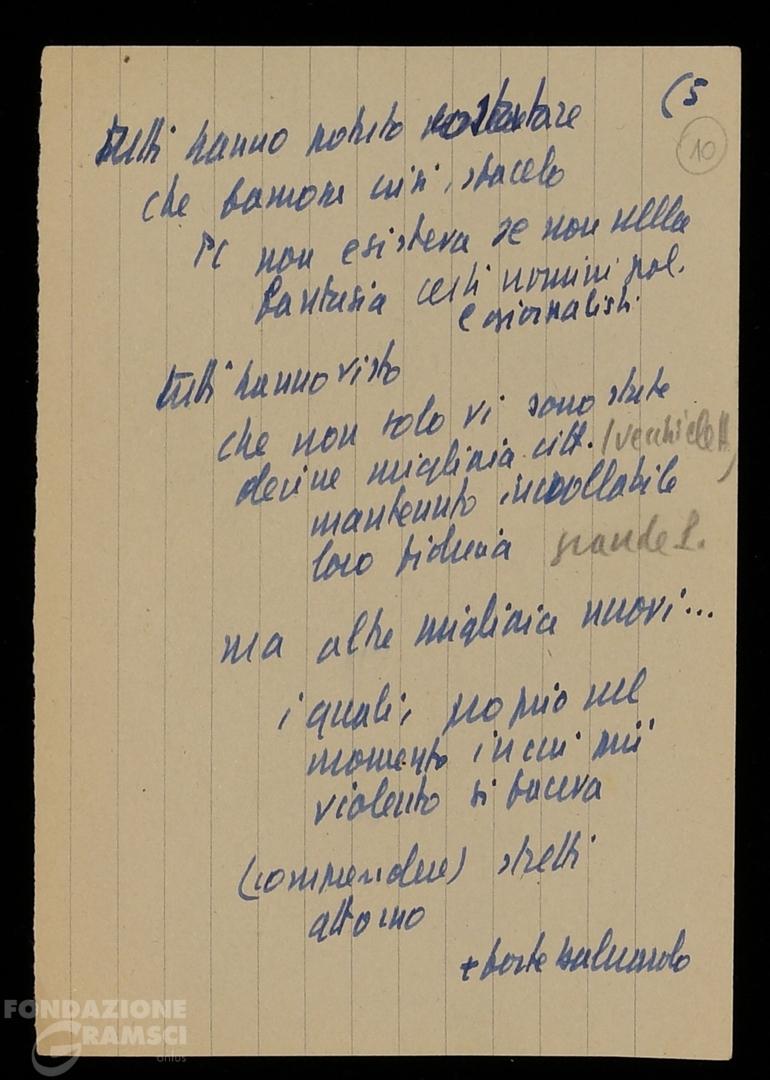 (5
10
tutti hanno potuto constatare
che famosa crisi, sfacelo
PC non esisteva se non nella
fantasia certi uomini pol.
e giornalisti.
tutti hanno visto
che non solo vi sono state
decine migliaia citt. (vecchi elett.)
mantenuto incrollabile
loro fiducia grande P.
ma altre migliaia nuovi...
i quali, proprio nel
momento in cui più
violento si faceva
(comprendere) stretti
attorno
+ forte baluardo
FONDAZIONE
GRAMSCI
onlus